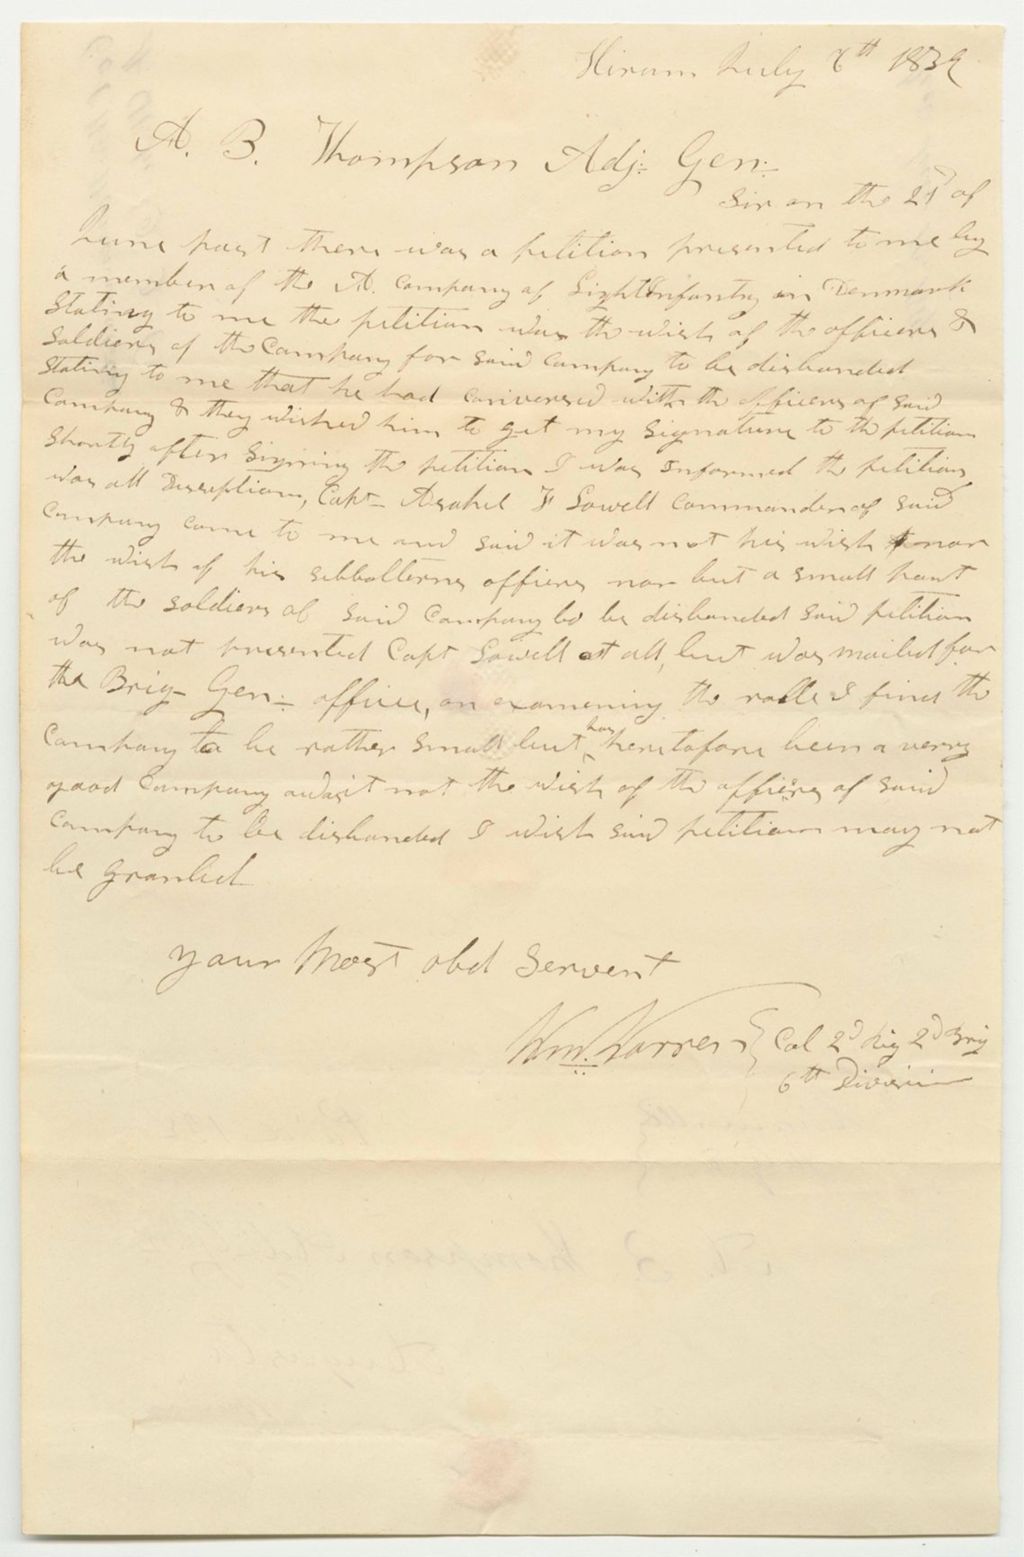 Hiram July 6th 1839
A. B. Thompson Adj. Gen.
Sir on the 21 of
June past there was a petition presented to me by
a member of the A. Company of Light Infantry in Denmark
Stating to me the petition was the wish of the officers &
Soldiers of the Company for said Company to be disbanded
Stating to me that he had conversed with the officers of said
Company & they wished him to get my Signature to the petition
Shortly after Signing the petition I was Informed the petition
was all Deseption, Capt Asahel F Lowell Commander of said
Company came to me and said it was not his wish nor
the wish of his sebbolterns officers nor but a small part
of the soldiers of said Company to be disbanded said petition
was not presented Capt Lowell at all, but was mailed for
the Brig Gen. office, on examening the rolle I find the
Company to be rather small but has heretofore been a verry
good Company and as it not the wish of the officers of said
Company to be disbanded I wish said petition may not
be granted
your Most obd Servent
Wm. Warren } Col 2d Reg 2d Brig
6th Division